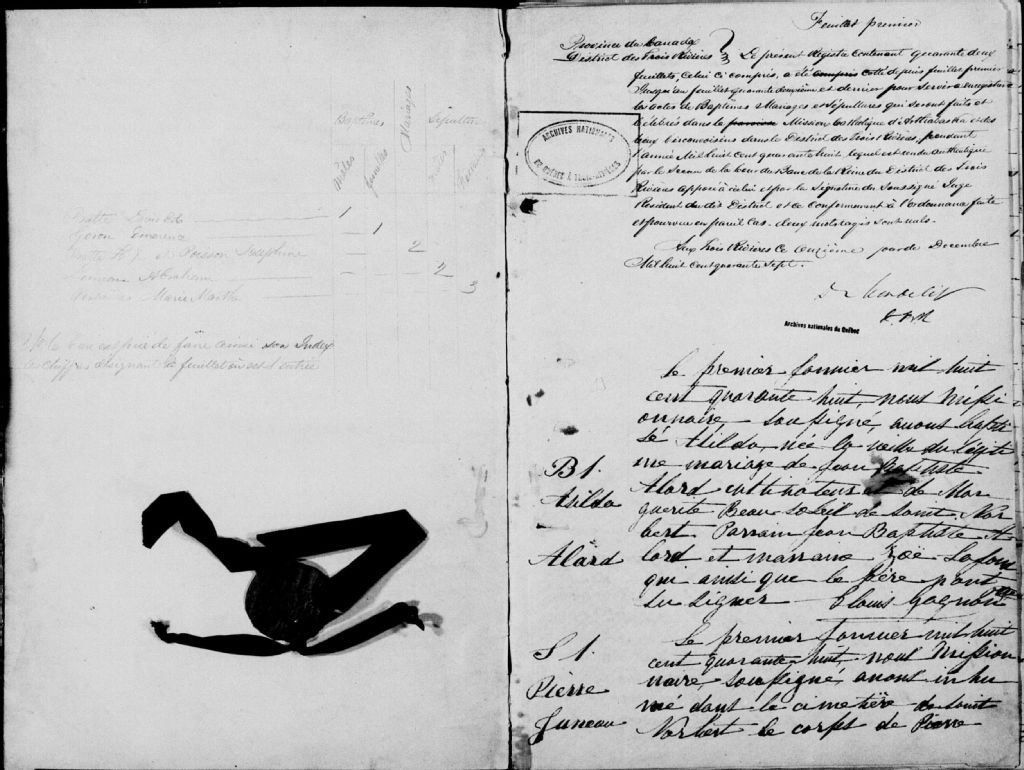 Baptêmes
Mariages
Sépultures
Mâles
femelles
1
1
2
2
3
et Poisson Joséphine
Abraham
Marie Marthe
de faire ainsi son Index
les chiffres désignant le feuillet où est l'entrée
Feuillet premier
Province du Canada
District des Trois Rivières } Le présent Registre contenant quarante deux
feuillets, Celui ci compris, a été compris coté depuis feuillet premier
Jusqu'au feuillet quarante deuxième et dernier pour servir à enregistrer
les actes de Baptêmes Mariages et Sépultures qui seront faits et
célébrés dans la paroisse Mission Catholique d'Arthabaska et des
lieux Circonvoisins dans le District des Trois Rivières, pendant
l'année Mil huit cent quarante huit, lequel est rendu authentique
par le Sceau de la Cour du Banc de la Reine du District des Trois
Rivières apposé à celui et par la Signature du Soussigné Juge
Resident du dit District et ce Conformément à l'Ordonnance faite
et pourvue en pareil Cas. deux mots rayés sont nuls.
Aux Trois Rivières ce onzième jour de Décembre
Mil huit cent quarante Sept.
ARCHIVES NATIONALES
DU QUÉBEC À TROIS-RIVIÈRES
Archives nationales du Québec
Le premier Janvier mil huit
cent quarante huit, nous Missi
onnaire soussigné, avons bapti
sé Hilda, née la veille du légiti
me mariage de Jean Baptiste
B 1.
Hilda
Alard
Alard cultivateur et de Mar
guerite Beausoleil de Saint Nor
bert Parrain Jean Baptiste A
lard et marraine Zoé Lafon
qui ainsi que le père n'ont
su signer Clovis Gagnon
Le premier Janvier mil huit
cent quarante huit, nous Mission
naire, soussigné, avons inhu
mé dans le cimetière de Saint
Norbert le corps de Pierre
S 1.
Pierre
Juneau